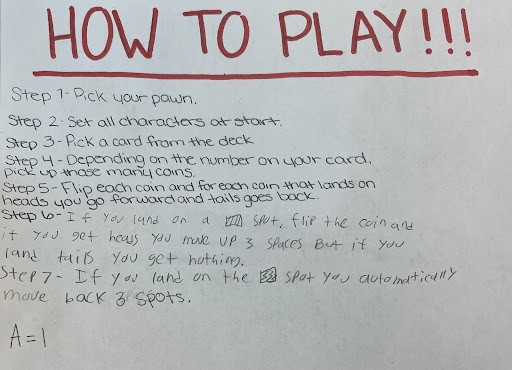 HOW TO PLAY!!!
Step 1-Pick your pawn.
Step 2-Set all characters at start.
Step 3-Pick a card from the deck
Step 4-Depending on the number on your card,
pick up those many coins.
Step 5-Flip each coin and for each coin that lands on
heads you go forward and tails goes back.
Step 6-If you land on a spot, flip the coin and
if you get heads you move up 3 spaces But if you
land tails you get nothing.
Step 7-If you land on the spot you automatically
move back 3 spots.
A=1